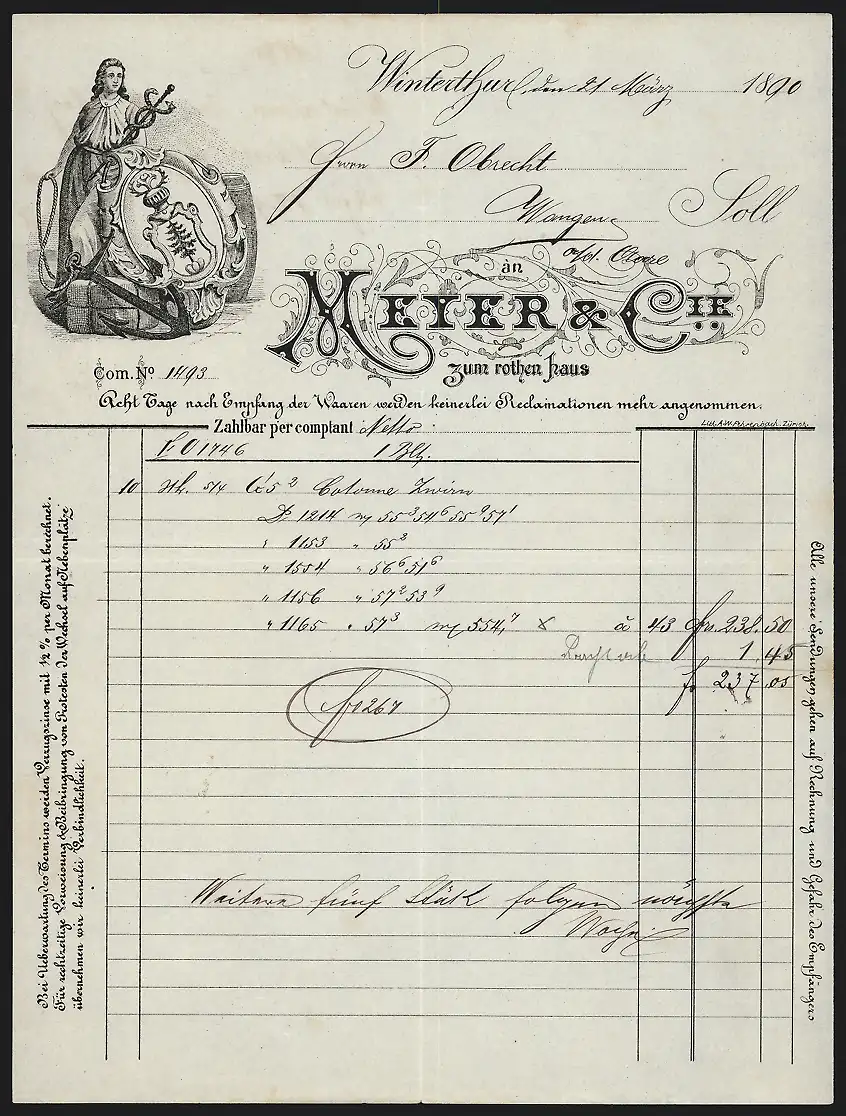 Winterthur, den 21 März 1890
Herrn F. Obrecht
Wangen
Soll
an
MEYER & CIE
zum rothen Haus
Com. No 1493
Acht Tage nach Empfang der Waaren werden keinerlei Reclamationen mehr angenommen.
Zahlbar per comptant Netto
Lith. A.W. Fehrenbach. Zürich.
1746 1
10 Stk. 5/4 Cotonne Zwirn
1214 55² 54⁶ 55⁹ 57¹
" 1153 " 55³
" 1554 " 56⁶ 51⁶
" 1156 " 57² 53⁹
" 1165 " 57³ 554,⁷ à 43 frs. 238.50
1.45
fr 237.05
267
Weitere fünf Stük folgen nächste
Woche
Bei Ueberwartung des Termins werden Verzugszinse mit ½ % per Monat berechnet.
Für rechtzeitige Vorweisung & Beibringung von Protesten der Wechsel auf Nebenplätze
übernehmen wir keinerlei Verbindlichkeit.
Alle unsere Sendungen gehen auf Rechnung und Gefahr des Empfängers